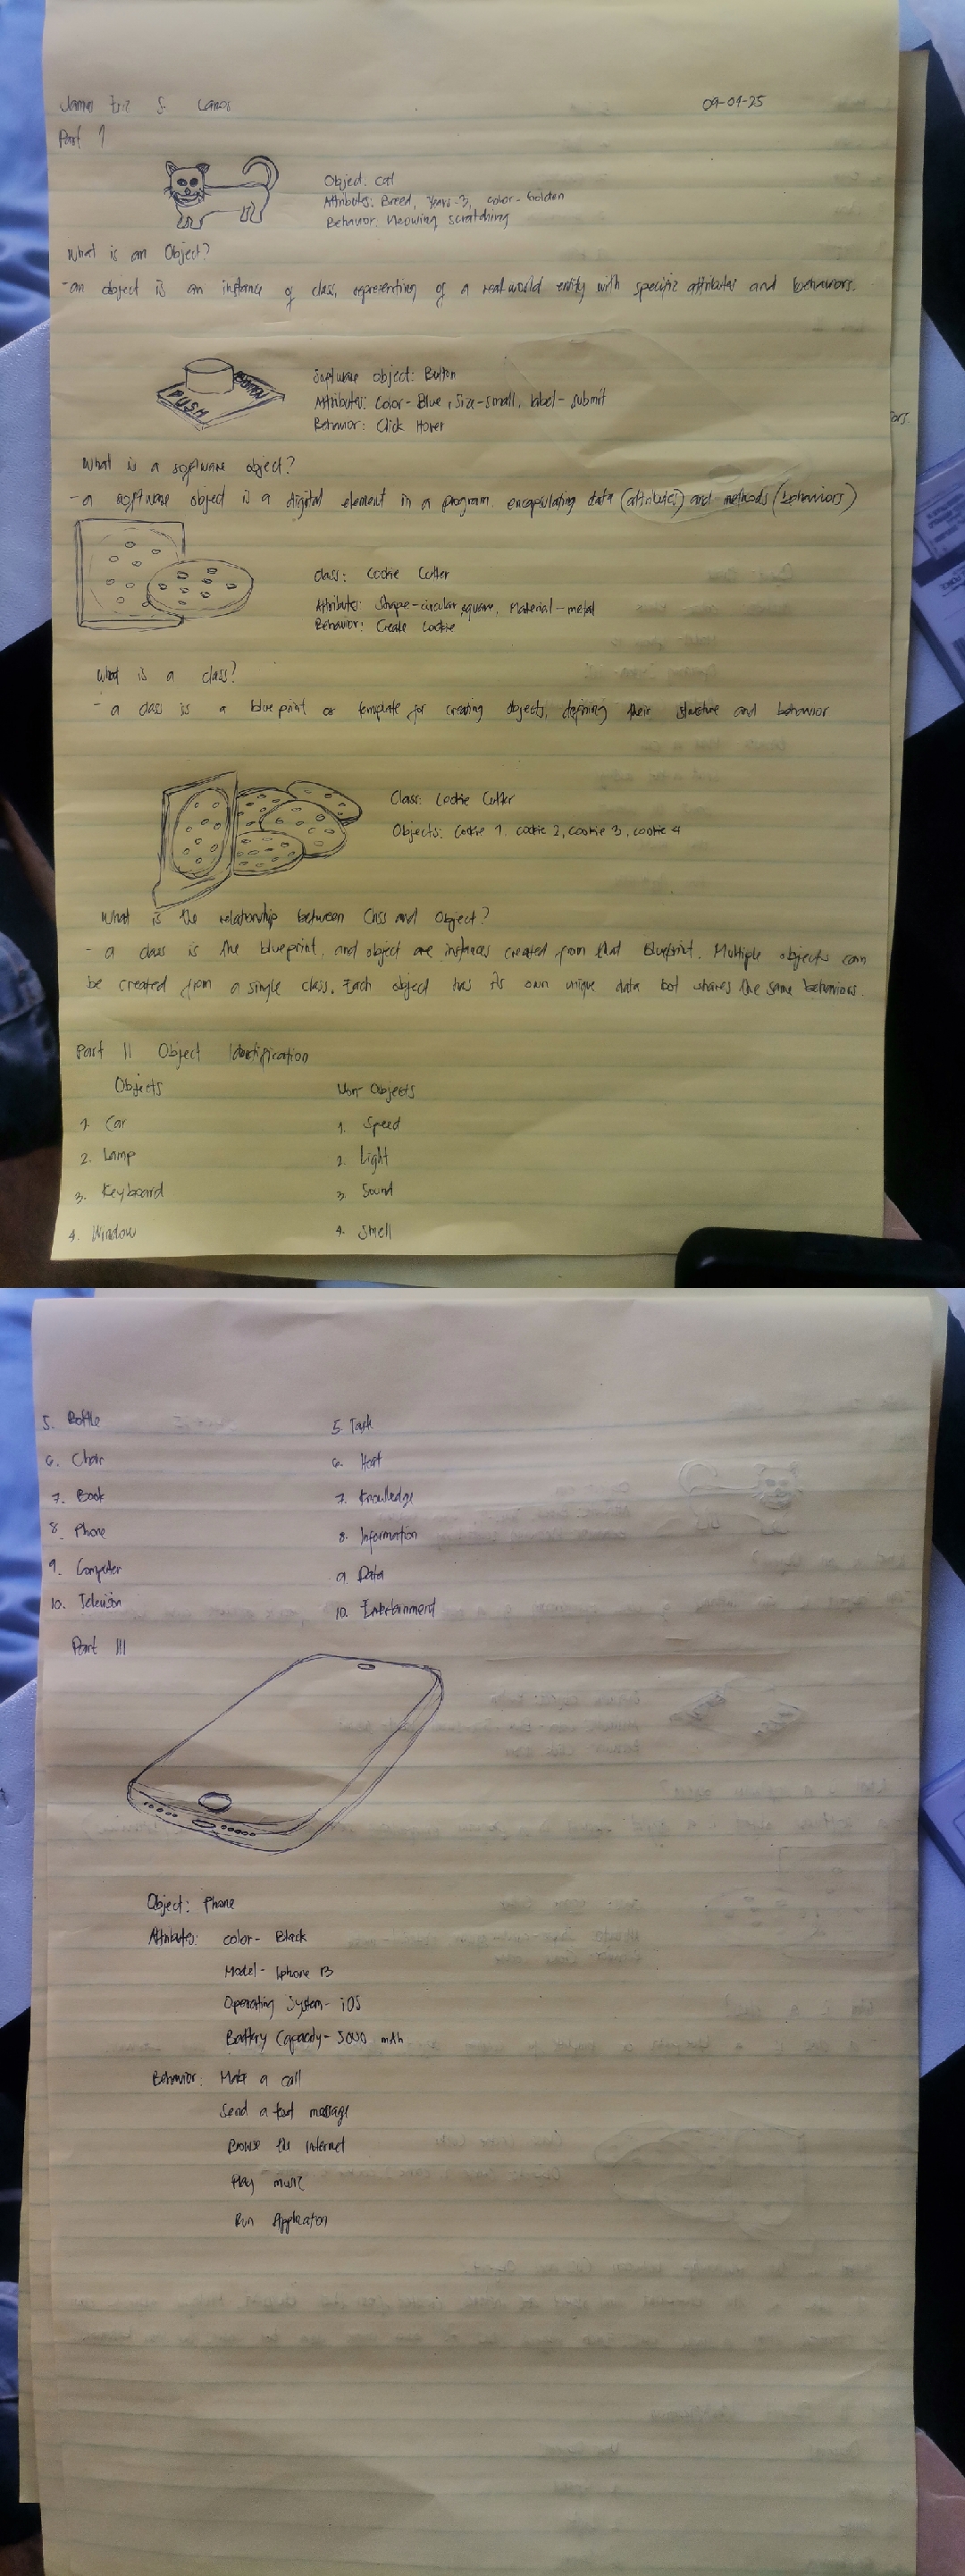 James Eric S. Lanos 09-04-25
Part 1
Object: Cat
Attributes: Breed, Years-3, color-Golden
Behavior: Meowing, scratching
What is an Object?
-an object is an instance of class, representing of a real world entity with specific attributes and behaviors.
PUSH BUTTON
Software object: Button
Attributes: Color-Blue, Size-small, label-submit
Behavior: Click Hover
What is a software object?
-a software object is a digital element in a program, encapsulating data (attributes) and methods (behaviors)
class: Cookie Cutter
Attributes: Shape-circular, square, Material-metal
Behavior: Create Cookie
What is a class?
-a class is a blueprint or template for creating objects, defining their structure and behavior
Class: Cookie Cutter
Objects: Cookie 1, cookie 2, cookie 3, cookie 4
What is the relationship between Class and Object?
-a class is the blueprint, and object are instances created from that Blueprint. Multiple objects can
be created from a single class. Each object has its own unique data but shares the same behaviors.
Part II Object Identification
Objects Non-Objects
1. Car 1. Speed
2. Lamp 2. Light
3. Keyboard 3. Sound
4. Window 4. Smell
5. Bottle 5. Task
6. Chair 6.
7. Book 7. Knowledge
8. Phone 8. Information
9. Computer 9. Data
10. Television 10. Entertainment
Part III
Object: Phone
Attributes: color- Black
Model- Iphone 13
Operating System- iOS
Battery Capacity- 5000 mAh
Behavior: Make a call
Send a text message
Browse the Internet
Play music
Run Application